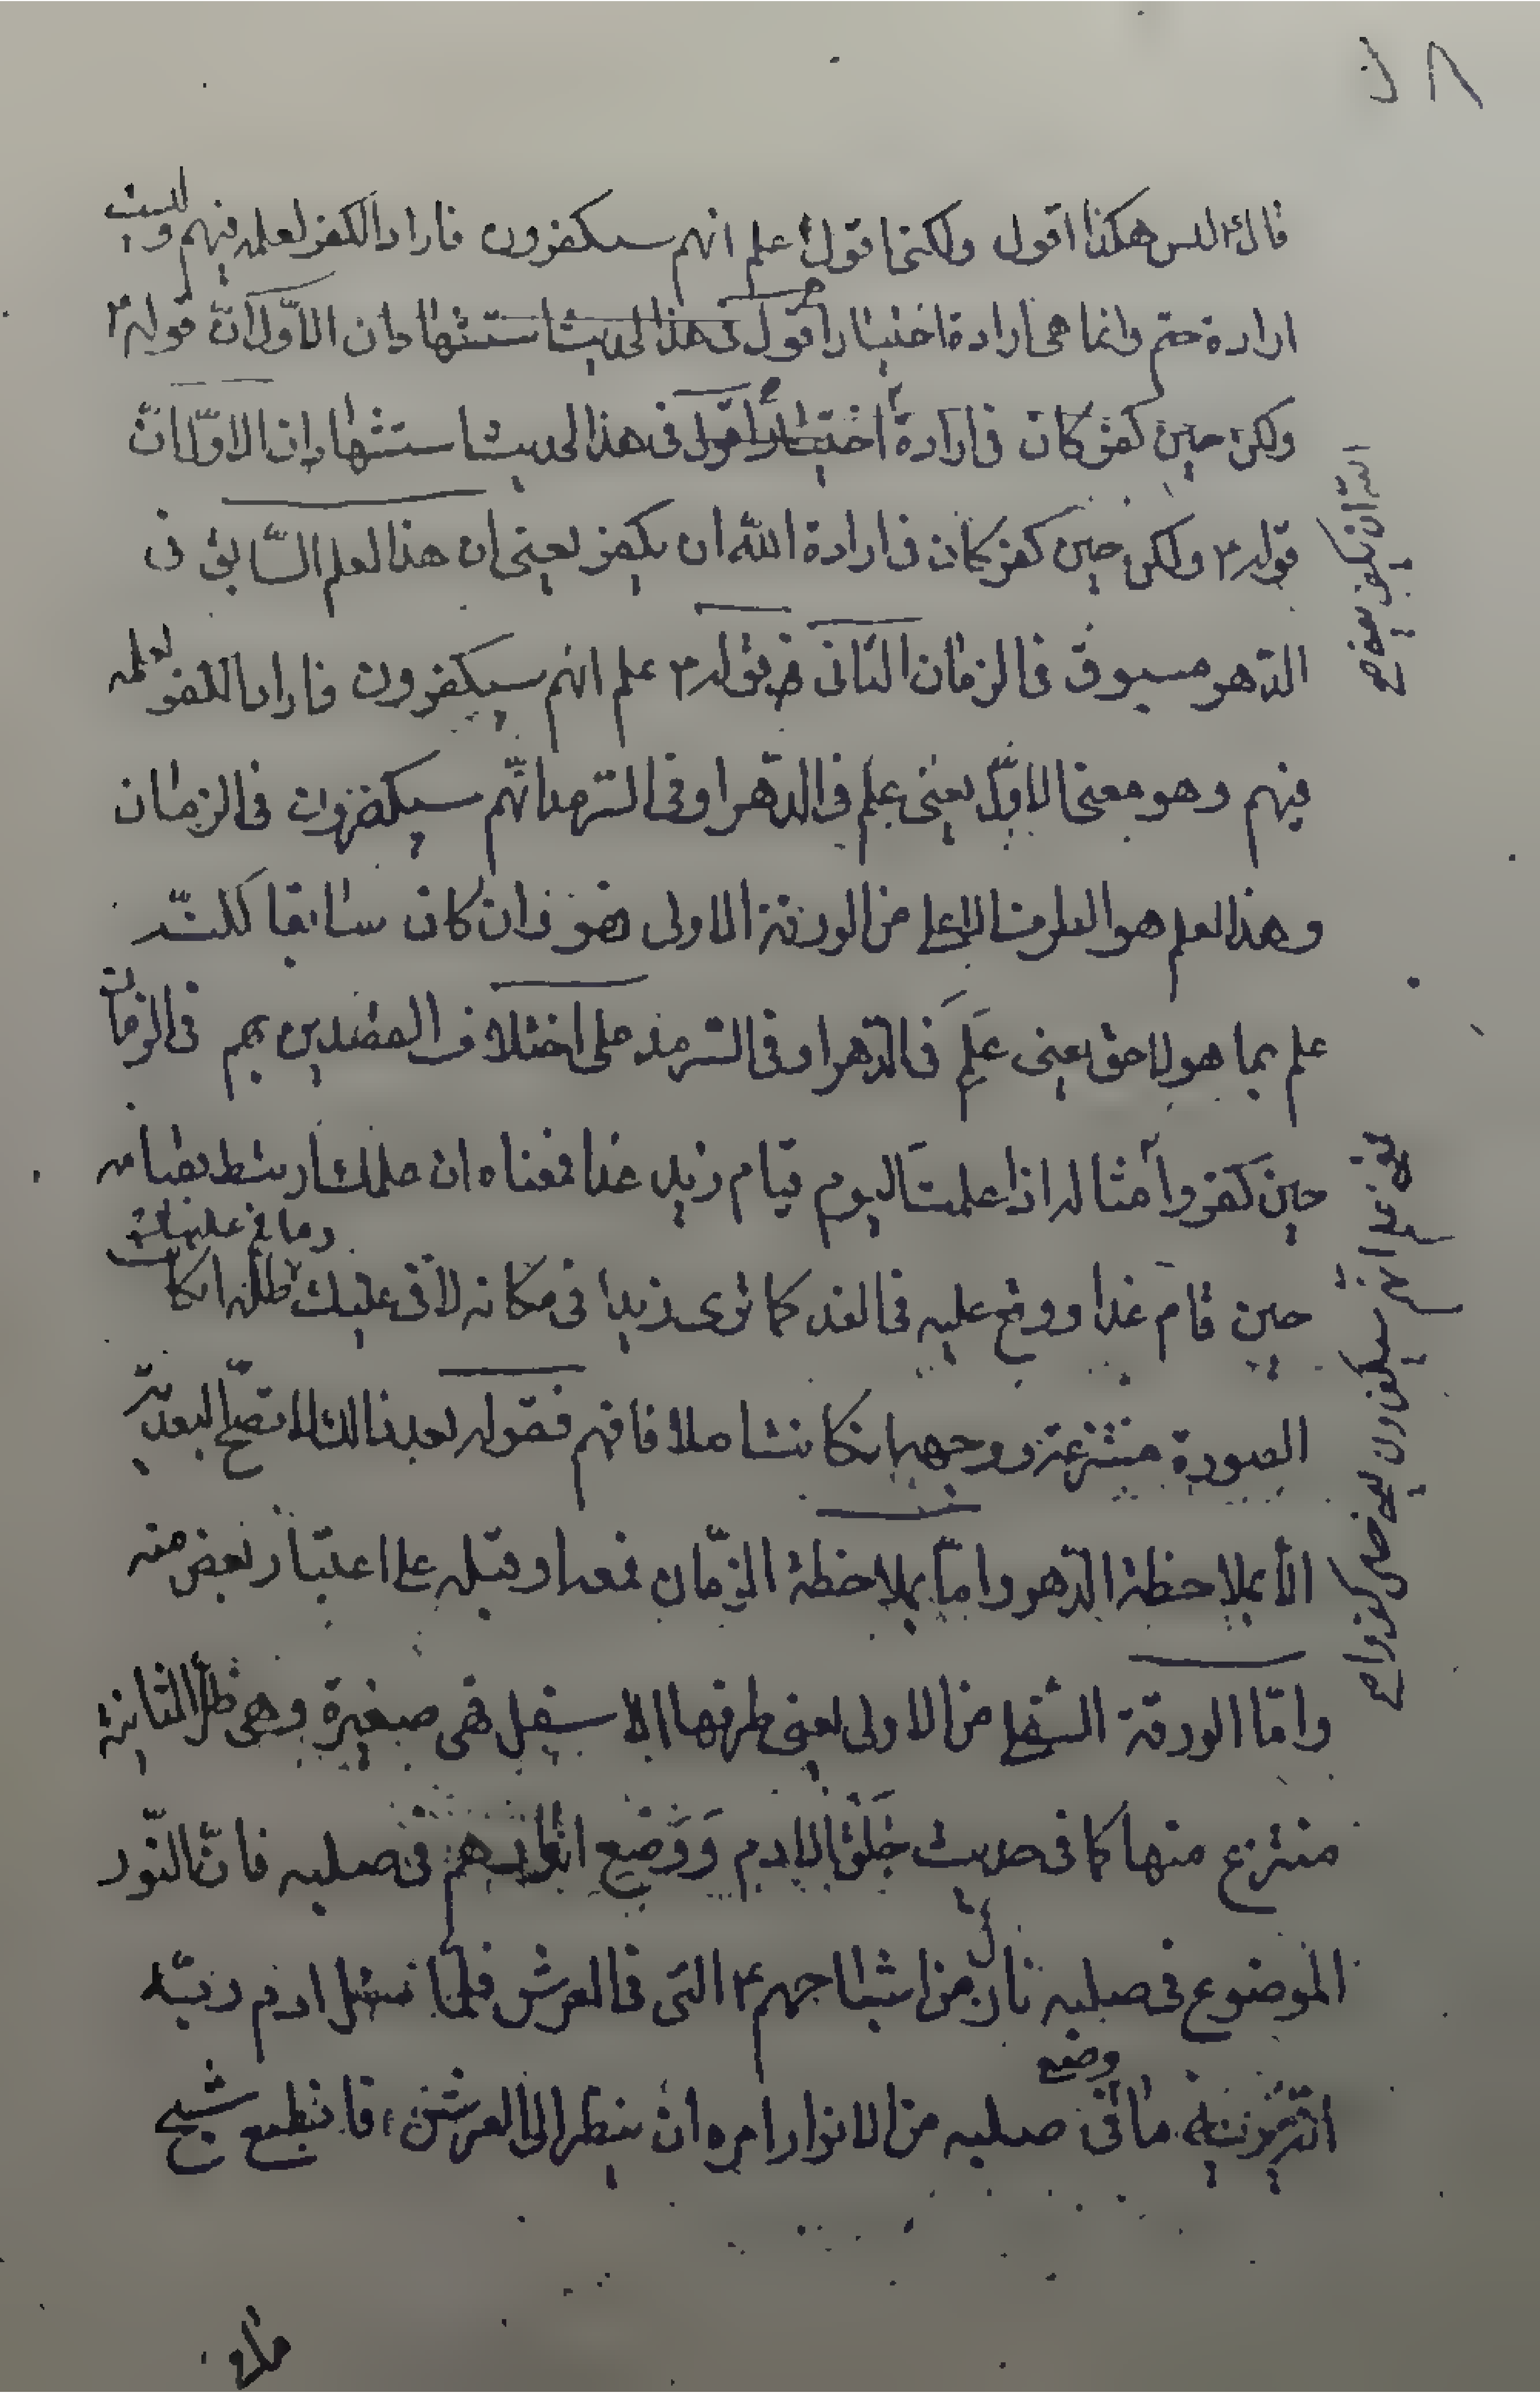 قال ۴ ليس هكذا اقول ولكنى اقول علم انهم سيكفرون فاراد الكفر لعلمه فيهم وليست
ارادة حتم وانما هى ارادة اختيار اقول فى هذا الحديث استشهادان الاول ان قوله ۴
ولكن حين كفر كان فى ارادة اختيار اقول فى هذا الحديث استشهادان الاول ان
قوله ۴ ولكن حين كفر كان فى ارادة الله ان يكفر يعنى ان هذا العلم السابق فى
الدهر مسبوق فى الزمان الثانى قوله ۴ علم انهم سيكفرون فاراد الكفر لعلمه
فيهم وهو معنى الاول يعنى علم فى الدهر او فى السرمد انهم سيكفرون فى الزمان
وهذا العلم هو العلوم الاعلى من الورقة الاولى فهو وان كان سابقا لكنه
علم بما هو لاحق يعنى علم فى الدهر او فى السرمد على اختلاف المقصدين بهم فى الزمان
حين كفروا مثاله اذا علمت اليوم قيام زيد غدا فمعناه ان علمك ارتبط بقيامه
حين قام غدا ووقع عليه فى الغد كما ترى زيدا فى مكانه لا فى عليك
الصورة منتزعة ووجهها هنا كانت املا فافهم فقوله بعد ذلك لا تصح البعدية
الا بملاحظة الدهر واما بملاحظة الزمان فمعه او قبله على اعتبار بعض منه
واما الورقة السفلى من الاولى يعنى طرفها الاسفل فهى صغيرة وهى ظل الثانية
منتزع منها كما فى حديث خلق ادم ووضع انوارهم فى صلبه فان النور
الموضوع فى صلبه نازل من اشباحهم ۴ التى فى العرش فلما سئل ادم ربه
ما وضع فى صلبه من الانوار امره ان ينظر الى العرش فانطبع شبح
الله ان يكفر يعنى صح
يعنى علم انهم سيكفرون حين كفروا صح